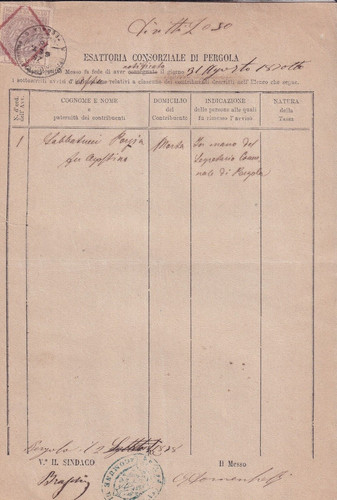 Diritti £ 0.50
ESATTORIA CONSORZIALE DI PERGOLA
notificato
Messo fa fede di aver consegnato il giorno 31 Agosto 18
i sottoscritti avvisi d' relativi a ciascuno dei contribuenti descritti nell'Elenco che segue.
N. d'ord. dell'Avv.
COGNOME E NOME e paternità dei contribuenti
DOMICILIO del Contribuenti
INDICAZIONE delle persone alle quali fu rimesso l'avviso
NATURA della Tassa
1 Sabbatucci Porzia Morta In mano del
fu Agostino Segretario Comu
nale di Pergola
Pergola li 2 Settbre 1878
V.° IL SINDACO
Il Messo